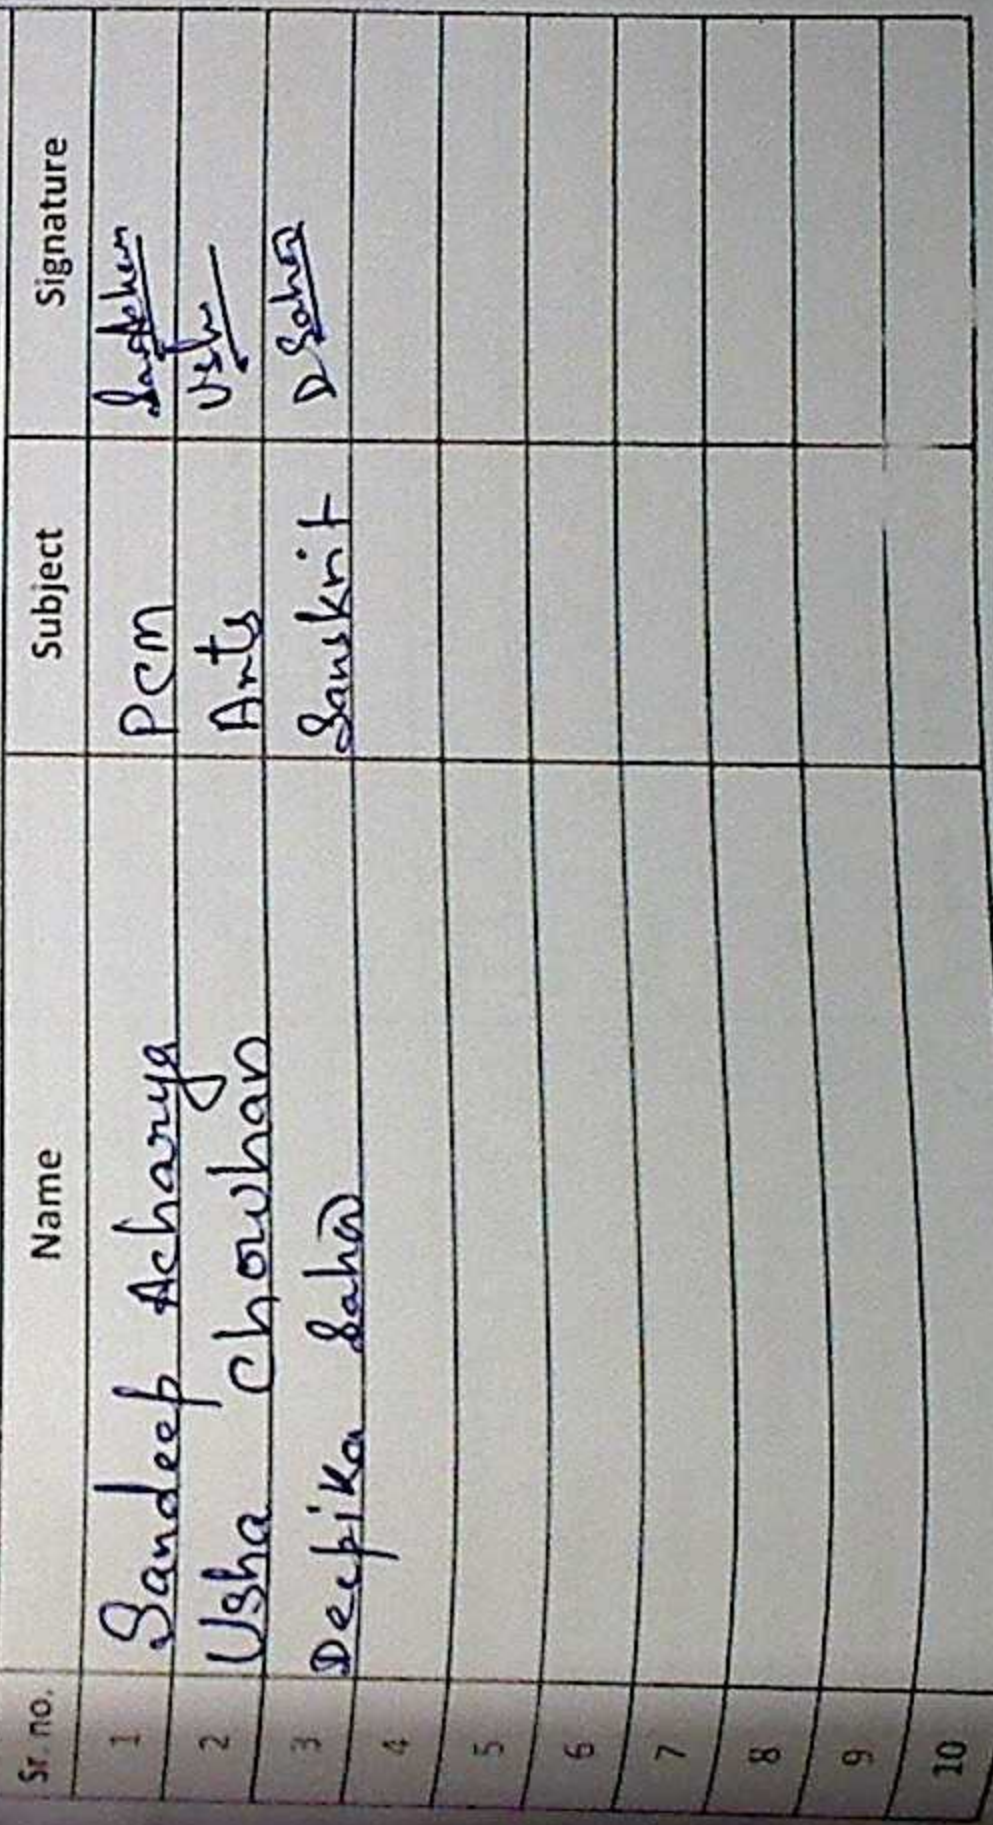 Sr. no. Name Subject Signature
1 Sandeep Acharya PCM
2 Usha Chowhan Arts Usha
3 Deepika Sahoo Sanskrit D Sahoo
4
5
6
7
8
9
10